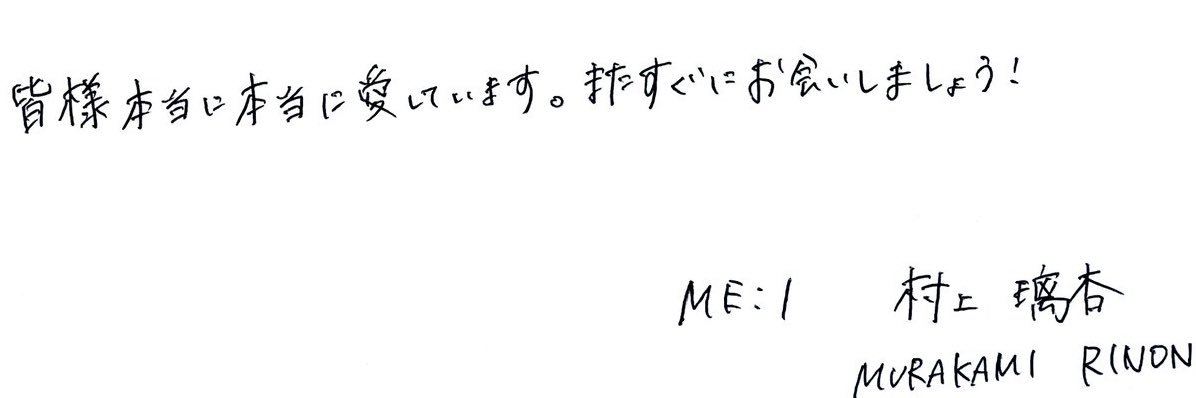 皆様本当に本当に愛しています。またすぐにお会いしましょう!
ME:I 村上 璃杏
MURAKAMI RINON